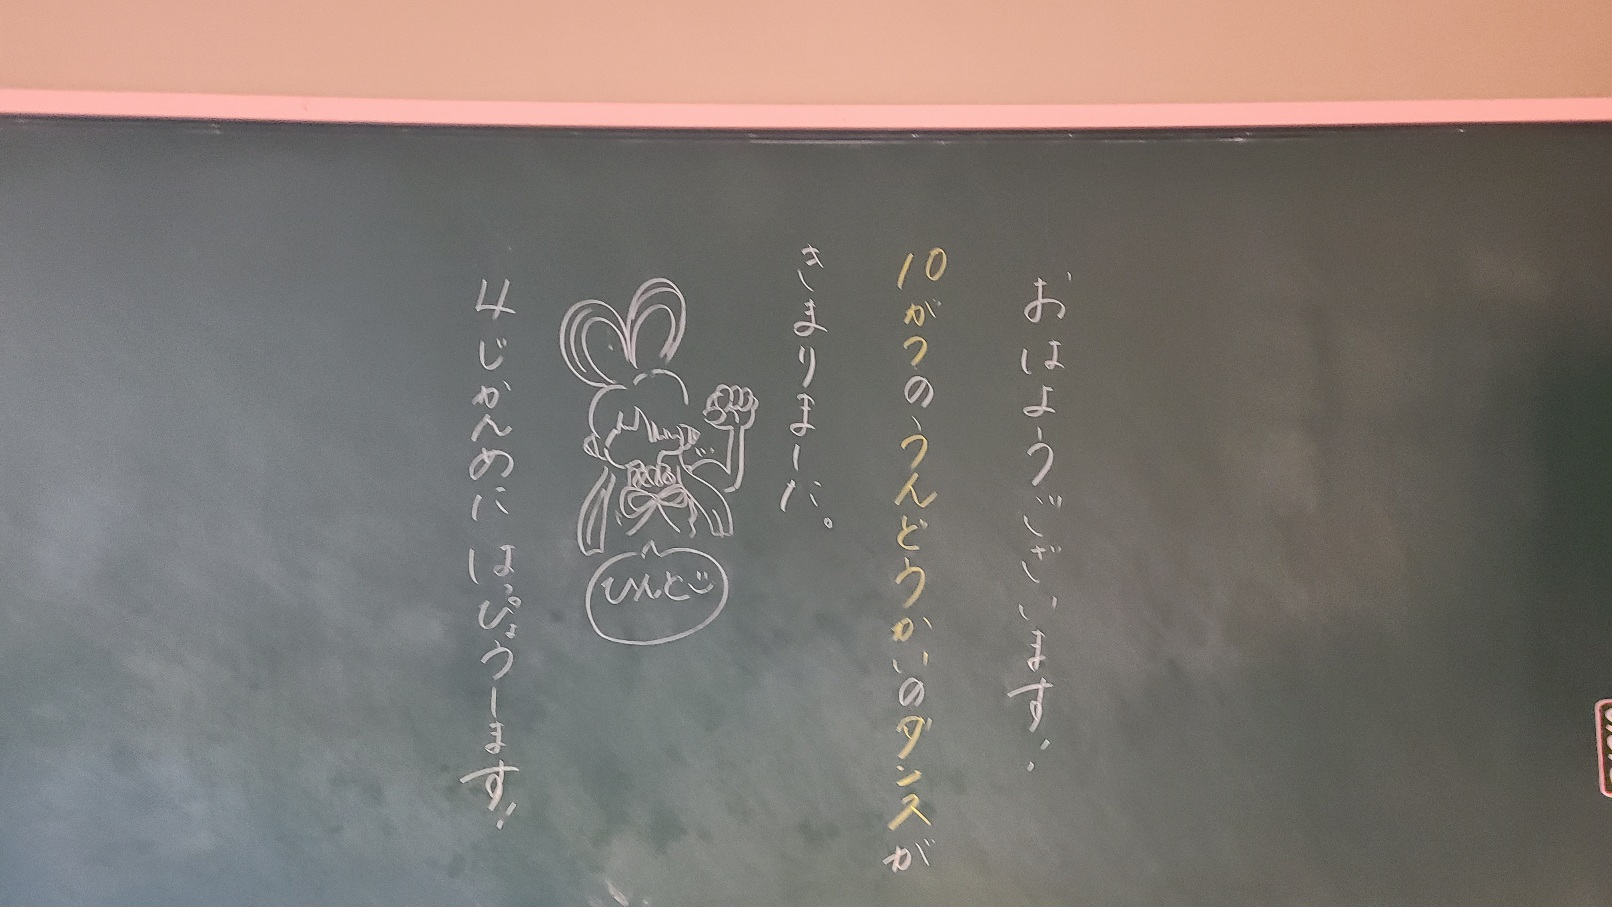 おはようございます!
10がつの、うんどうかいのダンスが
きまりました。
ひんと
4じかんめに はっぴょうします!